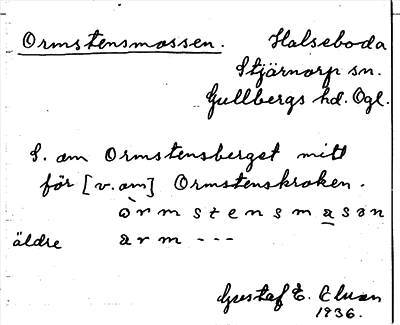 Ormstensmossen. Halseboda
Stjärnorp sn.
Gullbergs hd. Ögl.
S. om Ormstensberget mitt
för [v. om] Ormstenskroken.
òrmstensmasan
äldre arm ---
Gustaf E.
1936.